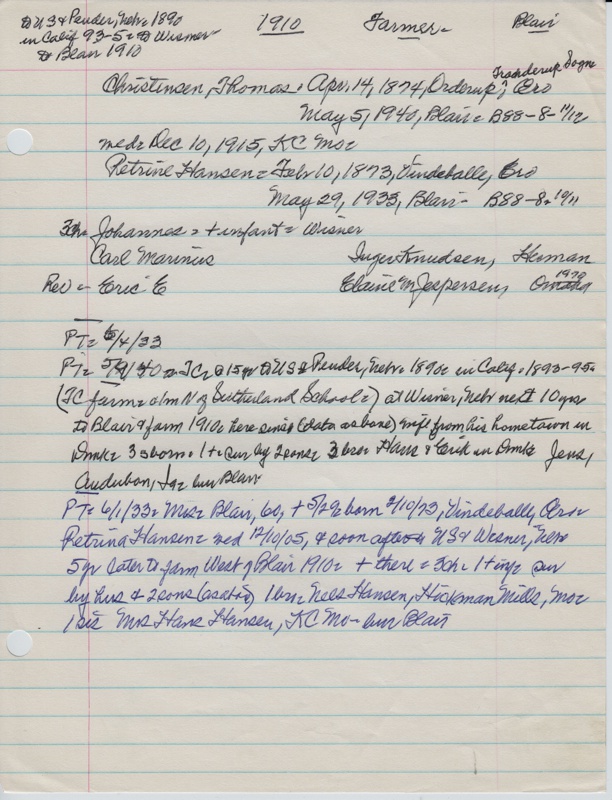 to US & Pender, Nebr 1890 1910 Farmer Blair
in Calif 93-5 = to Wisner
to Blair 1910
Tranderup Sogn
Christensen, Thomas = Apr. 14, 1874, Orderup, Ero
May 5, 1940, Blair = B88-8-11/12
med = Dec 10, 1915, KC Mo =
Petrine Hansen = Feb 10, 1873, Vindeballe, Ero
May 29, 1933, Blair - B88-8-10/11
3ch = Johannes = + infant = Wisner
Carl Marinus Inger Knudsen, Herman
Rev = Eric E Elaine M Jespersen, Omaha 1970
PT = 6/4/33
PT = 5/9/40 = TC @ 15 yr to US & Pender, Nebr = 1890 = in Calif = 1893-95 =
(TC farm = o/m N of Sutherland School =) at Wisner, Nebr next 10 yrs
to Blair & farm 1910 = here since (data as above) wife from his hometown in
Dmk = 3 s born = 1 + = sur by 2 sons = 3 bros Hans & Erik in Dmk = Jens,
Audubon, Ia = bur Blair
PT = 6/1/33 = Mrs = Blair, 60, + 5/29 born 2/10/73, Vindeballe, Aro =
Petrina Hansen = med 12/10/05, & soon after = US & Wisner, Nebr
5 yr later to farm West of Blair 1910 = + there = 3ch = 1 + inf = sur
by hus & 2 sons 1 bro = Nels Hansen, Hickman Mills, Mo =
1 sis Mrs Hans Hansen, KC Mo - bur Blair